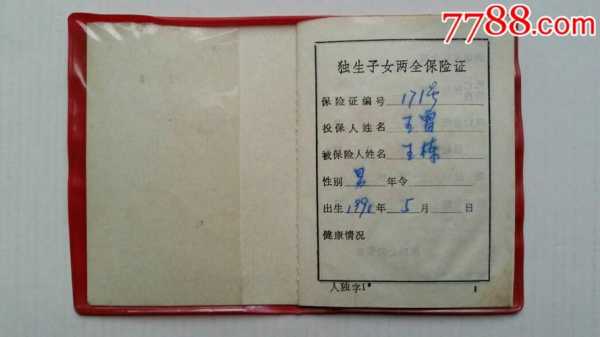 7788.com
独生子女两全保险证
保险证编号 171号
投保人姓名 王雷
被保险人姓名 王栋
性别 男 年令
出生 1991年 5月 日
健康情况
人独字1*
1